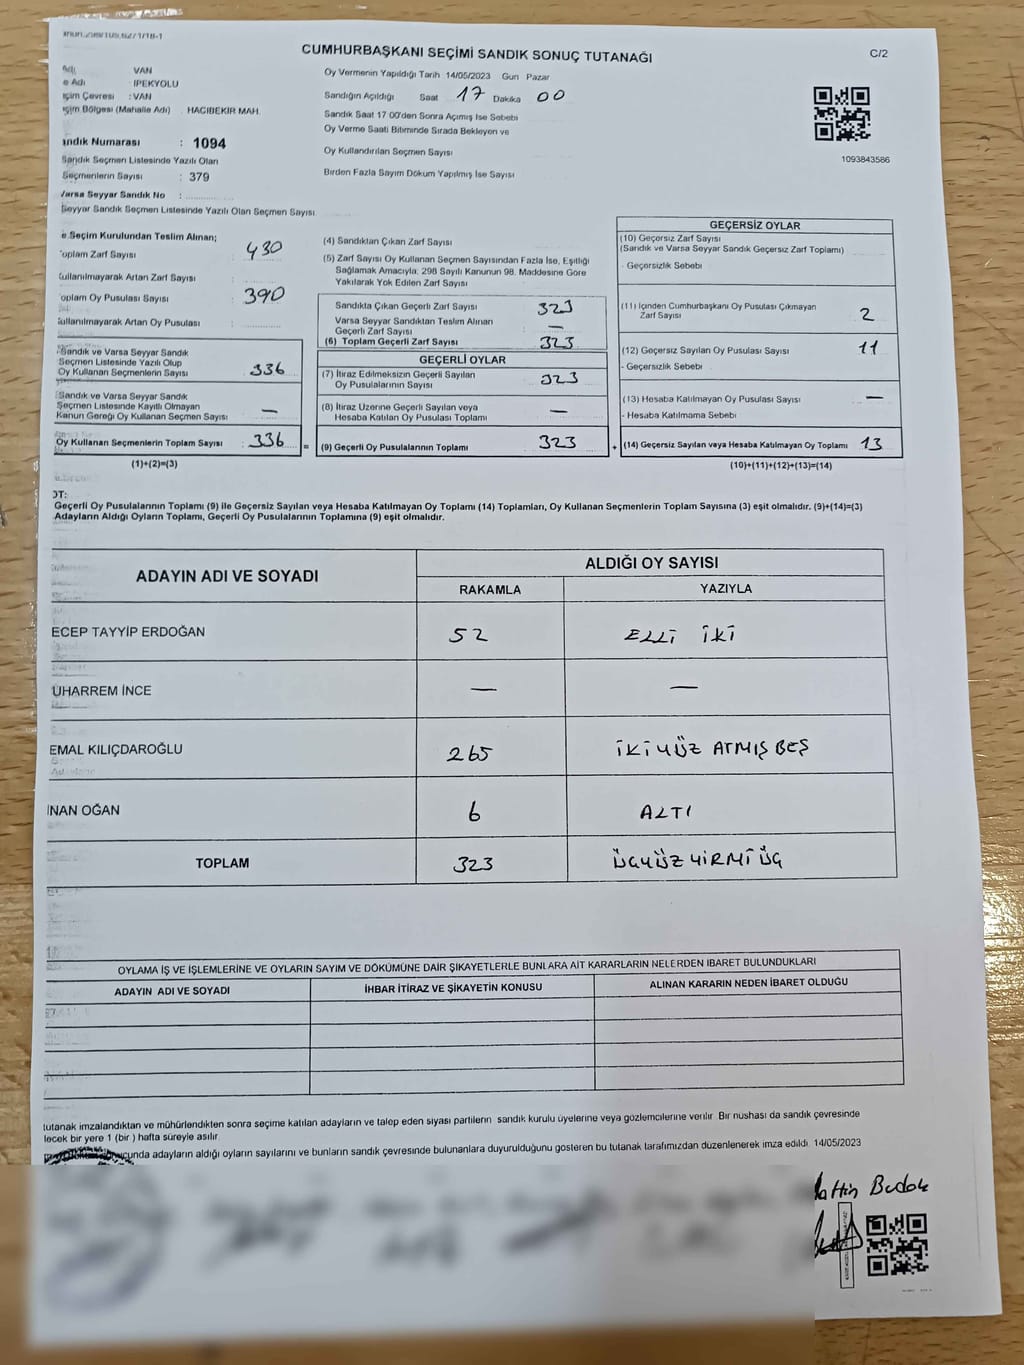 CUMHURBAŞKANI SEÇİMİ SANDIK SONUÇ TUTANAĞI
C/2
Adı VAN
e Adı IPEKYOLU
çim Çevresi : VAN
çim Bölgesi (Mahalle Adı) HACIBEKIR MAH.
andık Numarası : 1094
Sandık Seçmen Listesinde Yazılı Olan
Seçmenlerin Sayısı : 379
Varsa Seyyar Sandık No :
Seyyar Sandık Seçmen Listesinde Yazılı Olan Seçmen Sayısı
Oy Vermenin Yapıldığı Tarih 14/05/2023 Gun Pazar
Sandığın Açıldığı Saat 17 Dakika 00
Sandık Saat 17 00'den Sonra Açımış Ise Sebebi
Oy Verme Saati Bitiminde Sırada Bekleyen ve
Oy Kullandırılan Seçmen Sayısı
Birden Fazla Sayım Döküm Yapılmış Ise Sayısı
1093843586
e Seçim Kurulundan Teslim Alınan;
Toplam Zarf Sayısı : 430
Kullanılmayarak Artan Zarf Sayısı :
Toplam Oy Pusulası Sayısı : 390
Kullanılmayarak Artan Oy Pusulası :
Sandık ve Varsa Seyyar Sandık
Seçmen Listesinde Yazılı Olup
Oy Kullanan Seçmenlerin Sayısı : 336
Sandık ve Varsa Seyyar Sandık
Seçmen Listesinde Kayıtlı Olmayan
Kanun Gereği Oy Kullanan Seçmen Sayısı : —
Oy Kullanan Seçmenlerin Toplam Sayısı : 336 =
(1)+(2)=(3)
(4) Sandıktan Çıkan Zarf Sayısı
(5) Zarf Sayısı Oy Kullanan Seçmen Sayısından Fazla İse, Eşitliği
Sağlamak Amacıyla; 298 Sayılı Kanunun 98. Maddesine Göre
Yakılarak Yok Edilen Zarf Sayısı
Sandıkta Çıkan Geçerli Zarf Sayısı 323
Varsa Seyyar Sandıktan Teslim Alınan
Geçerli Zarf Sayısı —
(6) Toplam Geçerli Zarf Sayısı 323
GEÇERLİ OYLAR
(7) İtiraz Edilmeksizin Geçerli Sayılan
Oy Pusulalarının Sayısı 323
(8) İtiraz Üzerine Geçerli Sayılan veya
Hesaba Katılan Oy Pusulası Toplamı —
(9) Geçerli Oy Pusulalarının Toplamı 323 +
GEÇERSİZ OYLAR
(10) Geçersiz Zarf Sayısı
(Sandık ve Varsa Seyyar Sandık Geçersiz Zarf Toplamı)
- Geçersizlik Sebebi
(11) İçinden Cumhurbaşkanı Oy Pusulası Çıkmayan
Zarf Sayısı 2
(12) Geçersiz Sayılan Oy Pusulası Sayısı 11
- Geçersizlik Sebebi
(13) Hesaba Katılmayan Oy Pusulası Sayısı —
- Hesaba Katılmama Sebebi
(14) Geçersiz Sayılan veya Hesaba Katılmayan Oy Toplamı 13
(10)+(11)+(12)+(13)=(14)
OT:
Geçerli Oy Pusulalarının Toplamı (9) ile Geçersiz Sayılan veya Hesaba Katılmayan Oy Toplamı (14) Toplamları, Oy Kullanan Seçmenlerin Toplam Sayısına (3) eşit olmalıdır. (9)+(14)=(3)
Adayların Aldığı Oyların Toplamı, Geçerli Oy Pusulalarının Toplamına (9) eşit olmalıdır.
ADAYIN ADI VE SOYADI
ALDIĞI OY SAYISI
RAKAMLA YAZIYLA
ECEP TAYYİP ERDOĞAN 52 ELLİ İKİ
UHARREM İNCE — —
EMAL KILIÇDAROĞLU 265 İKİYÜZ ATMIŞ BEŞ
İNAN OĞAN 6 ALTI
TOPLAM 323 ÜÇYÜZYİRMİ ÜÇ
OYLAMA İŞ VE İŞLEMLERİNE VE OYLARIN SAYIM VE DÖKÜMÜNE DAİR ŞİKAYETLERLE BUNLARA AİT KARARLARIN NELERDEN İBARET BULUNDUKLARI
ADAYIN ADI VE SOYADI İHBAR İTİRAZ VE ŞİKAYETİN KONUSU ALINAN KARARIN NEDEN İBARET OLDUĞU
tutanak imzalandıktan ve mühürlendikten sonra seçime katılan adayların ve talep eden siyası partilerin sandık kurulu üyelerine veya gözlemcilerine verilir Bir nüshası da sandık çevresinde
lecek bir yere 1 (bir ) hafta süreyle asılır
cunda adayların aldığı oyların sayılarını ve bunların sandık çevresinde bulunanlara duyurulduğunu gösteren bu tutanak tarafımızdan düzenlenerek imza edildi 14/05/2023
Budak